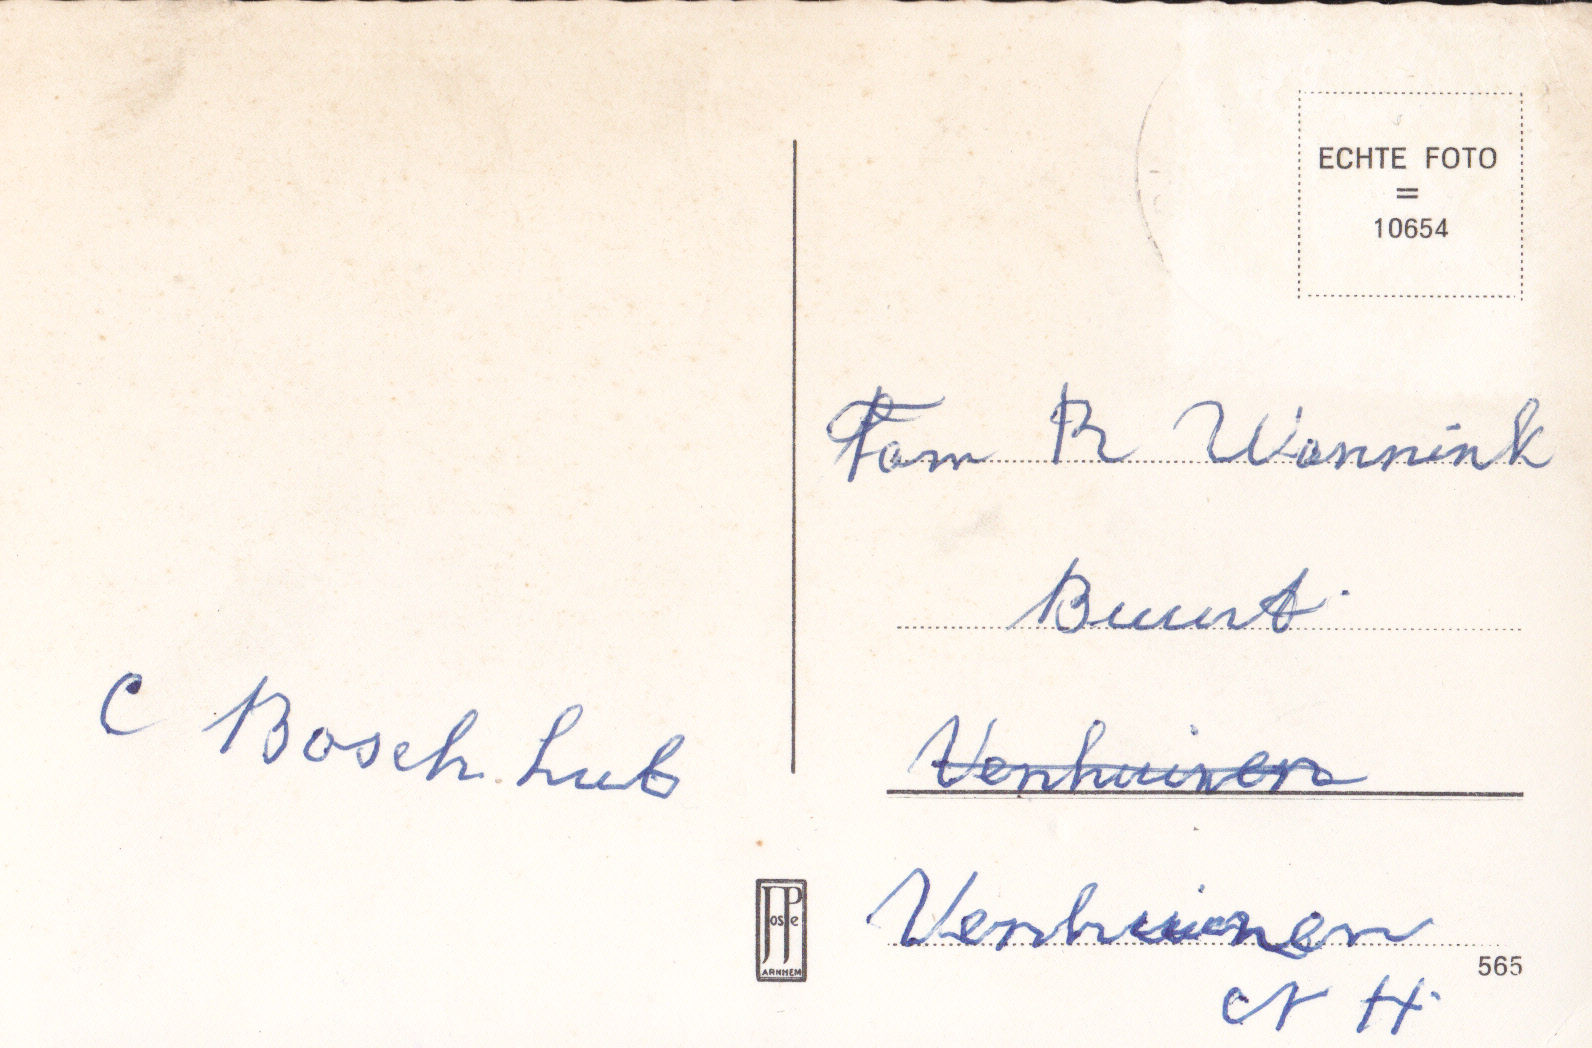 ECHTE FOTO
=
10654
Fam R Wonnink
Buurt.
Venhuizen
C Bosch. Lub
Venhuizen
N H.
565
JosPe
ARNHEM